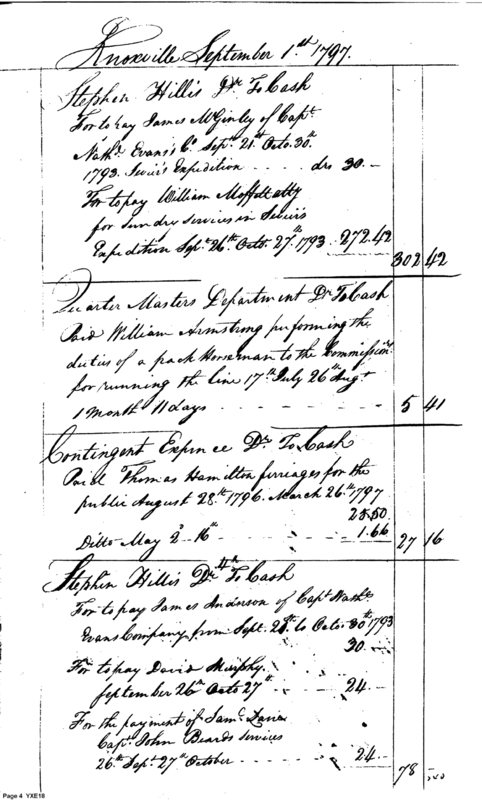 Knoxville September 1.st 1797.
Stephen Hillis Dr To Cash
For to pay James McGinley of Capt.
Nathl. Evans's Co. Sept. 21st Octo. 30th
1793. Sevier's Expedition - - - - drs 30.-
For to pay William Moffett atty
for sundry services in Sevier's
Expedition Sept. 26th Octo. 27th 1793 272.42
302 42
Quarter Masters Department Dr To Cash
Paid William Armstrong performing the
duties of a pack Horseman to the Commissionrs
for running the line 17th July 26th Augt
1 Month 11 days - - - - - - 5 41
Contingent Expence Dr. To Cash
Paid Thomas Hamilton ferriages for the
public August 28th 1796. March 26th 1797
25.50
Ditto May 2d 16th - - - - 1.66
27 16
4th
Stephen Hillis Dr To Cash
For to pay James Anderson of Capt Nathl.
Evans Company from Sept. 21st to Octo. 30th 1793
30. -
For to pay David Murphy
September 26th Octo 27th - - 24. -
For the payment of Saml.
Capt. John Beards services
26th Sept. 27th October - - - 24. -
78
Page 4 YXE18